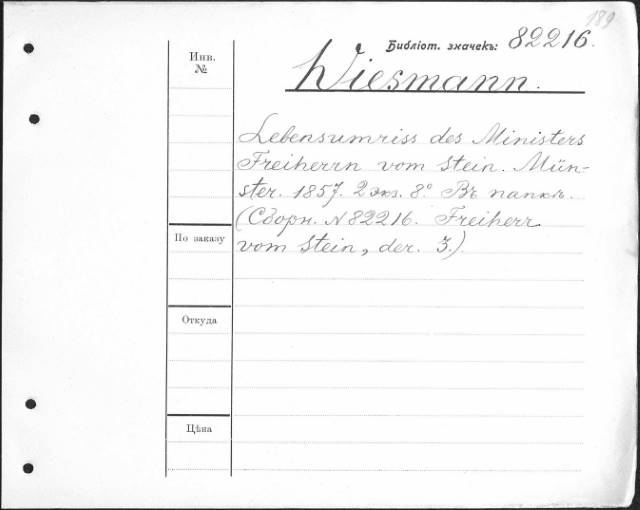 189
Библіот. значекъ: 82216.
Инв.
№
Wiesmann.
Lebensumriss des Ministers
Freiherrn vom Stein. Mün-
ster. 1857. 2 экз. 8°. Въ папкѣ.
(Сборн. № 82216. Freiherr
По заказу
vom Stein, der. 3.)
Откуда
Цѣна